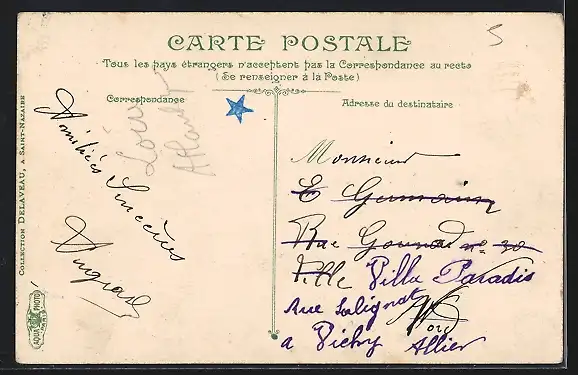 CARTE POSTALE
Tous les pays étrangers n'acceptent pas la Correspondance au recto
(Se renseigner à la Poste)
Correspondance
Adresse du destinataire
COLLECTION DELAVEAU, A SAINT-NAZAIRE
AQUA PHOTO
PARIS
5
Amitiés Sincères
Loire
Monsieur
E Germain
Rue Gounod n° 30
Ville Villa Paradis
Rue Salignat
a Vichy Allier